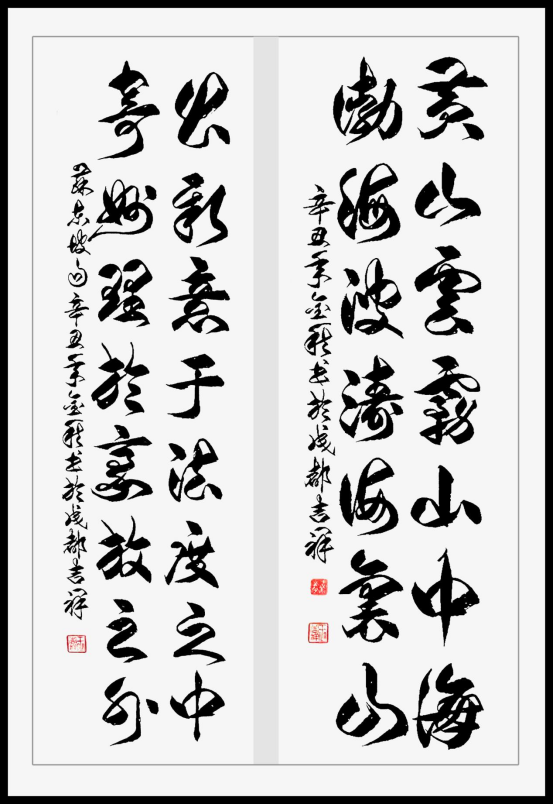 黄山雲霧山中海
渤海波濤海裏山
辛丑年金秋书於成都吉祥
出新意于法度之中
寄妙理於豪放之外
蘇东坡句辛丑年金秋书於成都吉祥